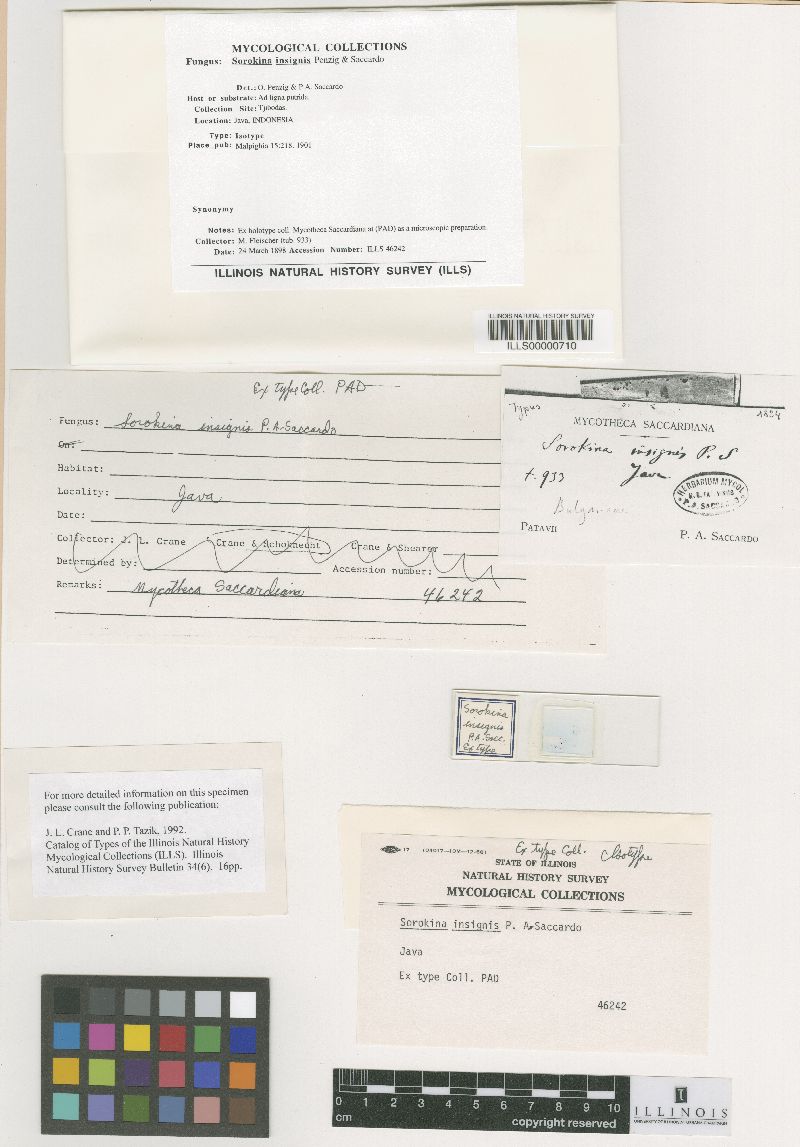 MYCOLOGICAL COLLECTIONS
Fungus: Sorokina insignis Penzig & Saccardo
Det.: O. Penzig & P.A. Saccardo
Host or substrate: Ad ligna putrida.
Collection Site: Tjibodas.
Location: Java, INDONESIA
Type: Isotype
Place pub: Malpighia 15:218. 1901
Synonymy
Notes: Ex holotype coll. Mycotheca Saccardiana at (PAD) as a microscopic preparation
Collector: M. Fleischer (tub. 933)
Date: 24 March 1898 Accession Number: ILLS 46242
ILLINOIS NATURAL HISTORY SURVEY (ILLS)
ILLINOIS NATURAL HISTORY SURVEY
ILLS00000710
Ex type Coll. PAD
Fungus: Sorokina insignis P.A. Saccardo
On:
Habitat:
Locality: Java
Date:
Collector: J. L. Crane Crane & Schoknecht Crane & Shearer
Determined by: Accession number:
Remarks: Mycotheca Saccardiana 46242
Typus 1894
MYCOTHECA SACCARDIANA
Sorokina insignis P. S
t. 933 Java
HERBARIUM MYCOL.
P.A. SACCARDO
PATAVII P. A. SACCARDO
Sorokina
insignis
P.A. Sacc.
Ex type
For more detailed information on this specimen
please consult the following publication:
J. L. Crane and P. P. Tazik. 1992.
Catalog of Types of the Illinois Natural History
Mycological Collections (ILLS). Illinois
Natural History Survey Bulletin 34(6). 16pp.
Ex type Coll. Isotype
STATE OF ILLINOIS
NATURAL HISTORY SURVEY
MYCOLOGICAL COLLECTIONS
Sorokina insignis P. A. Saccardo
Java
Ex type Coll. PAD
46242
0 1 2 3 4 5 6 7 8 9 10
cm
copyright reserved
I
ILLINOIS
UNIVERSITY OF ILLINOIS AT URBANA-CHAMPAIGN